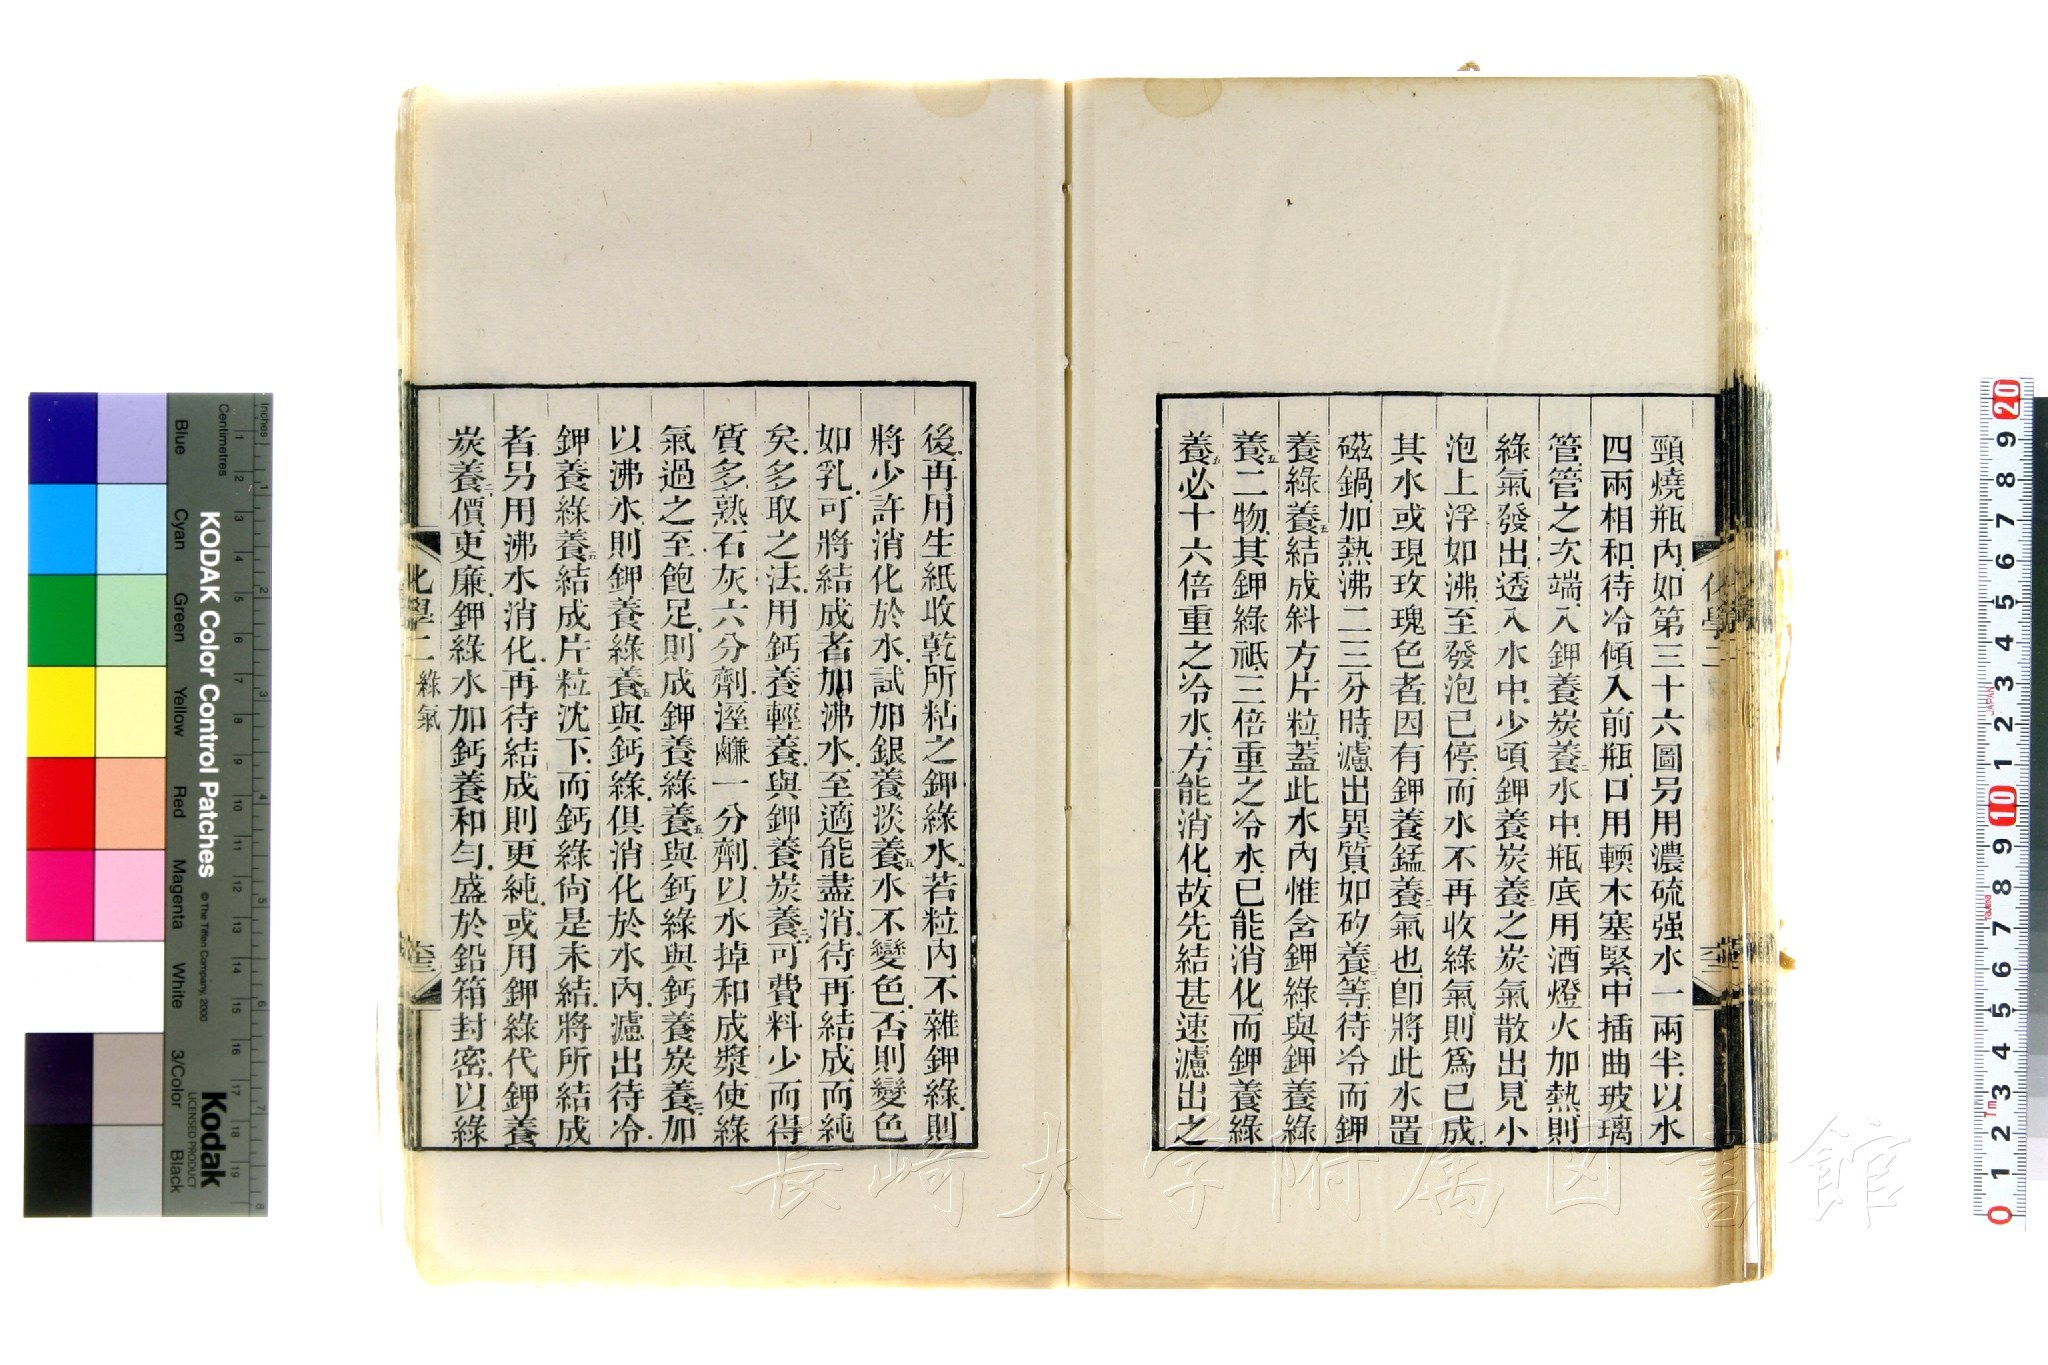 頸燒瓶內如第三十六圖另用濃硫强水一兩半以水
四兩相和待冷傾入前瓶口用輭木塞緊中插曲玻璃
管管之次端入鉀養炭養二水中瓶底用酒燈火加熱則
綠氣發出透入水中少頃鉀養炭養二之炭氣散出見小
泡上浮如沸至發泡已停而水不再收綠氣則爲已成
其水或現玫瑰色者因有鉀養錳養三氣也卽將此水置
磁鍋加熱沸二三分時濾出異質如矽養三等待冷而鉀
養綠養五結成斜方片粒蓋此水內惟含鉀綠與鉀養綠
養五二物其鉀綠祇三倍重之冷水已能消化而鉀養綠
養五必十六倍重之冷水方能消化故先結甚速濾出之
後再用生紙收乾所粘之鉀綠水若粒內不雜鉀綠則
將少許消化於水試加銀養淡養五水不變色否則變色
如乳可將結成者加沸水至適能盡消待再結成而純
矣多取之法用鈣養輕養與鉀養炭養二可費料少而得
質多熟石灰六分劑溼鹻一分劑以水掉和成漿使綠
氣過之至飽足則成鉀養綠養五與鈣綠與鈣養炭養二加
以沸水則鉀養綠養五與鈣綠俱消化於水內濾出待冷
鉀養綠養五結成片粒沈下而鈣綠尙是未結將所結成
者另用沸水消化再待結成則更純或用鉀綠代鉀養
炭養二價更廉鉀綠水加鈣養和勻盛於鉛箱封密以綠
化學二 綠氣
長崎大学附属図書館
KODAK Color Control Patches
© The Tiffen Company, 2000
Kodak
LICENSED PRODUCT
Inches
Centimetres
Blue
Cyan
Green
Yellow
Red
Magenta
White
3/Color
Black
JAPAN